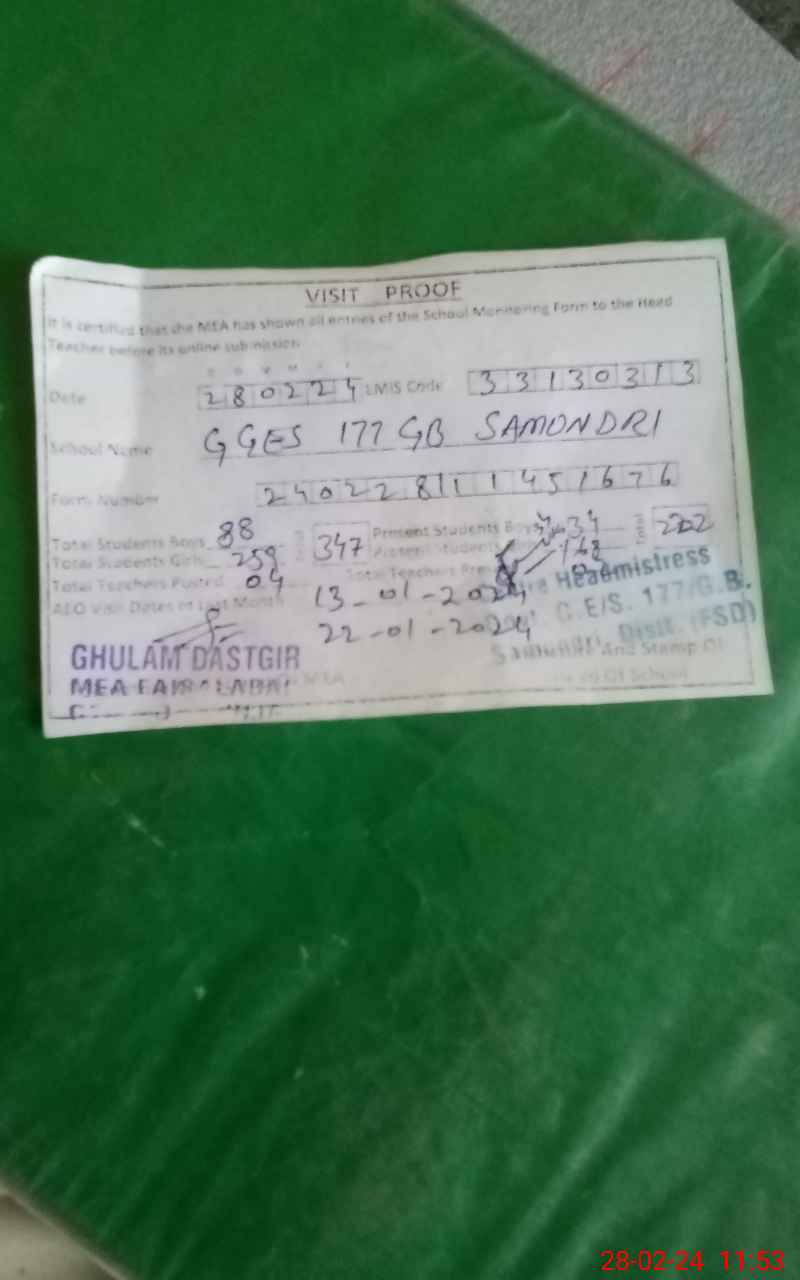 VISIT PROOF
It is certified that the MEA has shown all entries of the School Monitoring Form to the Head
Teacher before its online submission
Date 280224 EMIS Code 33130313
School Name GGES 177 GB SAMONDRI
Form Number 240228111451676
Total Students Boys 88 347 Present Students Boys 34 202
Total Students Girls 259 Present Students 168
Total Teachers Posted 04 Total Teachers
AEO Visit Dates of Last Month 13-01-2024
22-01-2024
Headmistress
G.E/S. 177/G.B.
Distt. (FSD)
GHULAM DASTGIR
MEA
And Stamp Of
Of School
28-02-24 11:53